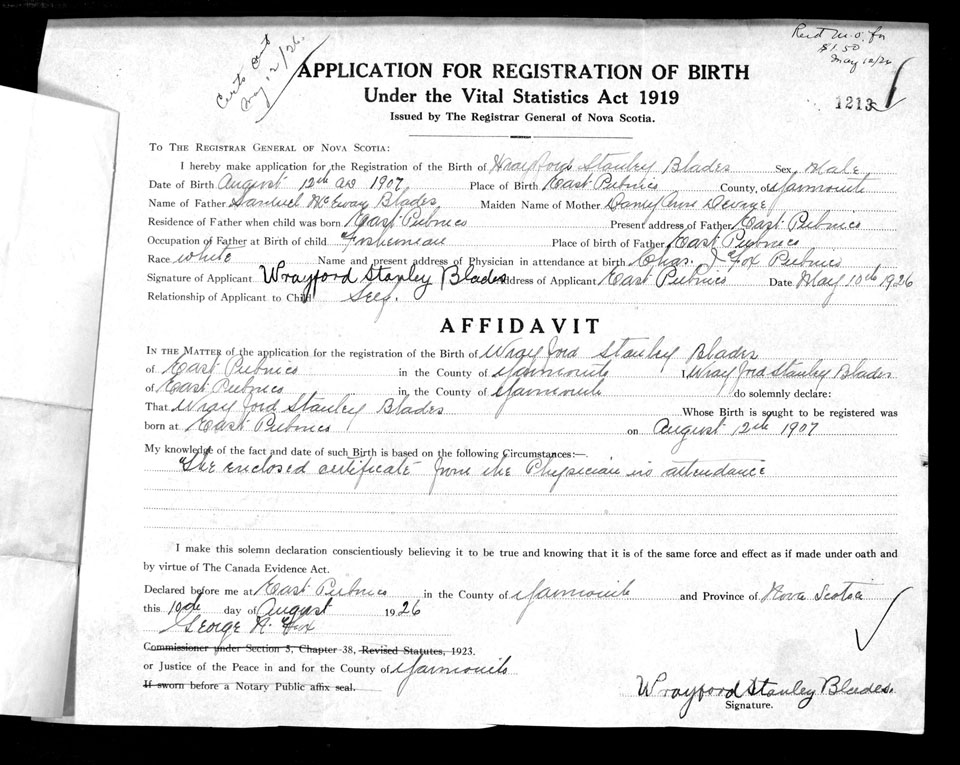 Certs Cent
May 12/26.
Rec'd M.O. for
$1.50
May 12/26
1213
APPLICATION FOR REGISTRATION OF BIRTH
Under the Vital Statistics Act 1919
Issued by The Registrar General of Nova Scotia.
TO THE REGISTRAR GENERAL OF NOVA SCOTIA:
I hereby make application for the Registration of the Birth of Wrayford Stanley Blades Sex, Male
Date of Birth August 12th AD 1907 Place of Birth East Pubnico County, of Yarmouth
Name of Father Samuel McEway Blades Maiden Name of Mother Ann
Residence of Father when child was born East Pubnico Present address of Father East Pubnico
Occupation of Father at Birth of child Fisherman Place of birth of Father East Pubnico
Race White Name and present address of Physician in attendance at birth Chas. J Fox Pubnico
Signature of Applicant Wrayford Stanley Blades Address of Applicant East Pubnico Date May 10th 1926
Relationship of Applicant to Child Self.
AFFIDAVIT
IN THE MATTER of the application for the registration of the Birth of Wrayford Stanley Blades
of East Pubnico in the County of Yarmouth I, Wrayford Stanley Blades
of East Pubnico in the County of Yarmouth do solemnly declare:
That Wrayford Stanley Blades Whose Birth is sought to be registered was
born at East Pubnico on August 12th 1907
My knowledge of the fact and date of such Birth is based on the following Circumstances:—
The enclosed certificate from the Physician in attendance
I make this solemn declaration conscientiously believing it to be true and knowing that it is of the same force and effect as if made under oath and
by virtue of The Canada Evidence Act.
Declared before me at East Pubnico in the County of Yarmouth and Province of Nova Scotia
this 10th day of August 1926
George A.
Commissioner under Section 5, Chapter 38, Revised Statutes, 1923.
or Justice of the Peace in and for the County of Yarmouth
If sworn before a Notary Public affix seal.
Wrayford Stanley Blades.
Signature.